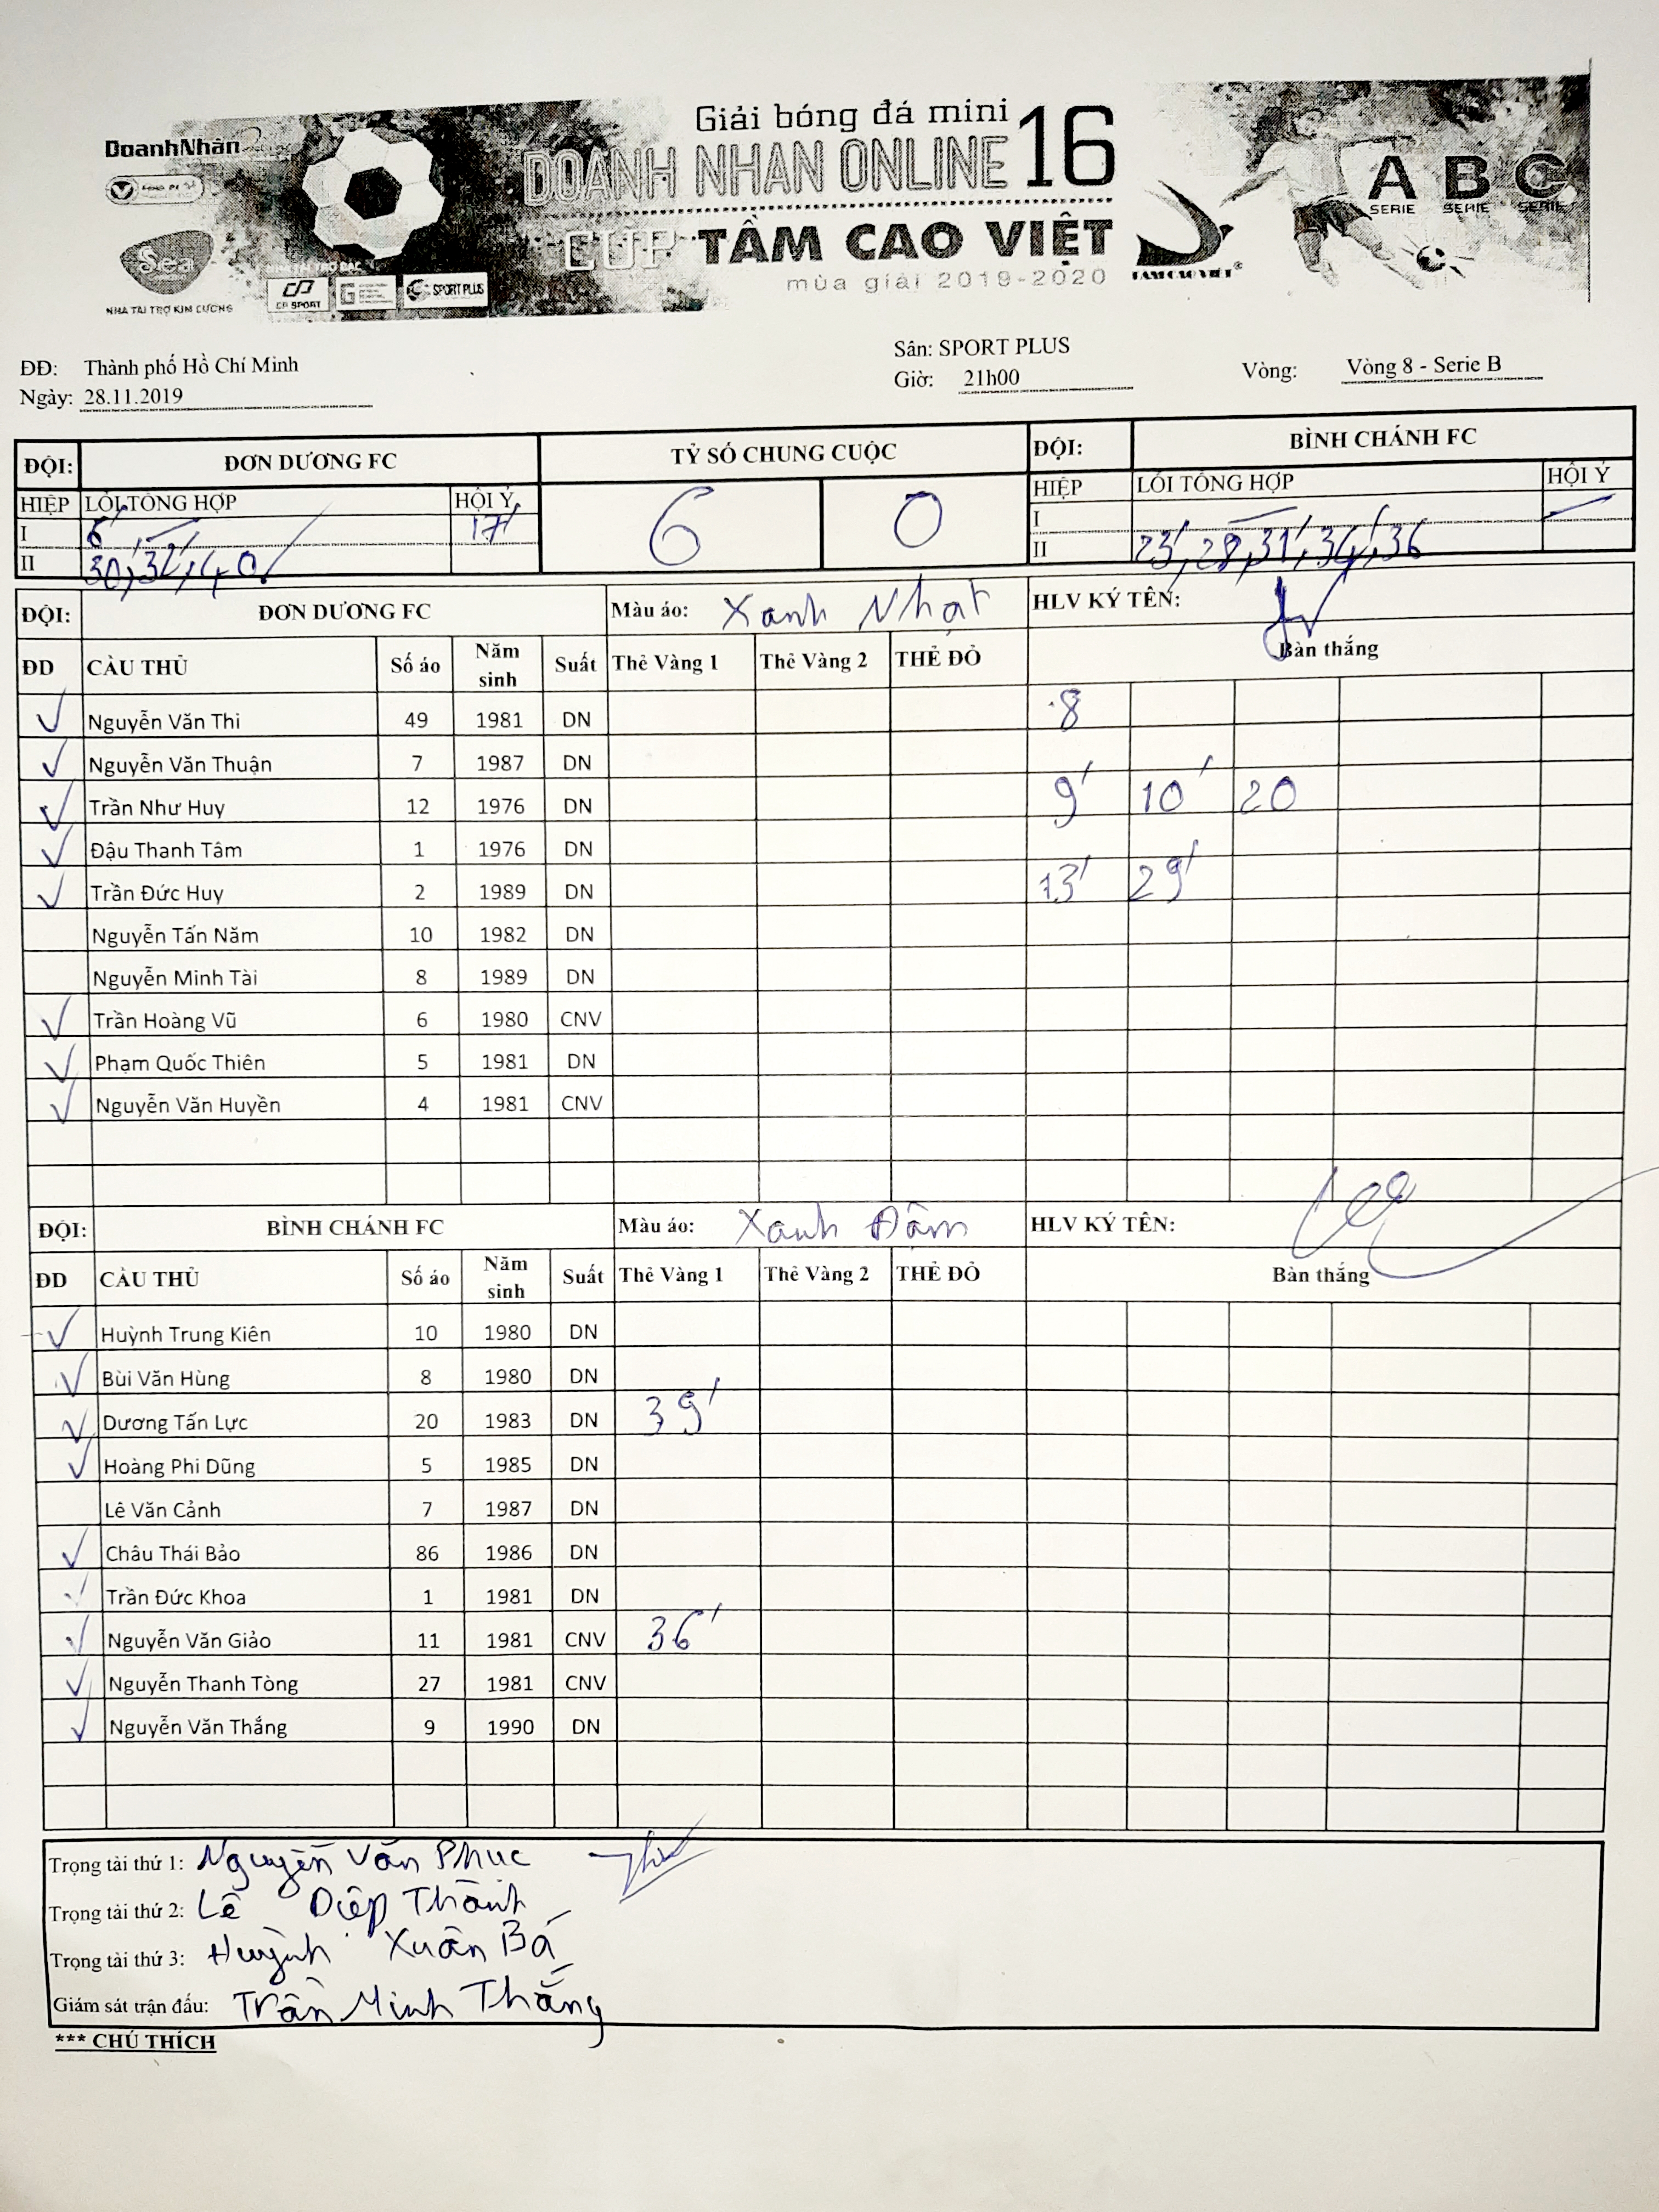 Giải bóng đá mini
DoanhNhân
DOANH NHAN ONLINE 16
A B C
SERIE SERIE SERIE
CUP TẦM CAO VIỆT
Sea
mùa giải 2019-2020
TAM CAO VIET
CP SPORT
SPORT PLUS
NHÀ TÀI TRỢ KIM CƯƠNG
ĐĐ: Thành phố Hồ Chí Minh Sân: SPORT PLUS
Ngày: 28.11.2019 Giờ: 21h00 Vòng: Vòng 8 - Serie B
ĐỘI: ĐƠN DƯƠNG FC TỶ SỐ CHUNG CUỘC ĐỘI: BÌNH CHÁNH FC
HIỆP LỖI TỔNG HỢP HỘI Ý 6 0 HIỆP LỖI TỔNG HỢP HỘI Ý
I 6' 17' I
II 30', 32', 40' II 23', 28, 31', 34', 36
ĐỘI: ĐƠN DƯƠNG FC Màu áo: Xanh Nhạt HLV KÝ TÊN:
ĐD CẦU THỦ Số áo Năm sinh Suất Thẻ Vàng 1 Thẻ Vàng 2 THẺ ĐỎ Bàn thắng
Nguyễn Văn Thi 49 1981 DN 8
Nguyễn Văn Thuận 7 1987 DN
Trần Như Huy 12 1976 DN 9' 10' 20
Đậu Thanh Tâm 1 1976 DN
Trần Đức Huy 2 1989 DN 13' 29'
Nguyễn Tấn Năm 10 1982 DN
Nguyễn Minh Tài 8 1989 DN
Trần Hoàng Vũ 6 1980 CNV
Phạm Quốc Thiên 5 1981 DN
Nguyễn Văn Huyền 4 1981 CNV
ĐỘI: BÌNH CHÁNH FC Màu áo: Xanh Đậm HLV KÝ TÊN:
ĐD CẦU THỦ Số áo Năm sinh Suất Thẻ Vàng 1 Thẻ Vàng 2 THẺ ĐỎ Bàn thắng
Huỳnh Trung Kiên 10 1980 DN
Bùi Văn Hùng 8 1980 DN
Dương Tấn Lực 20 1983 DN 39'
Hoàng Phi Dũng 5 1985 DN
Lê Văn Cảnh 7 1987 DN
Châu Thái Bảo 86 1986 DN
Trần Đức Khoa 1 1981 DN
Nguyễn Văn Giảo 11 1981 CNV 36'
Nguyễn Thanh Tòng 27 1981 CNV
Nguyễn Văn Thắng 9 1990 DN
Trọng tài thứ 1: Nguyễn Văn Phuc
Trọng tài thứ 2: Lê Diệp Thành
Trọng tài thứ 3: Huỳnh Xuân Bá
Giám sát trận đấu: Trần Minh Thắng
*** CHÚ THÍCH